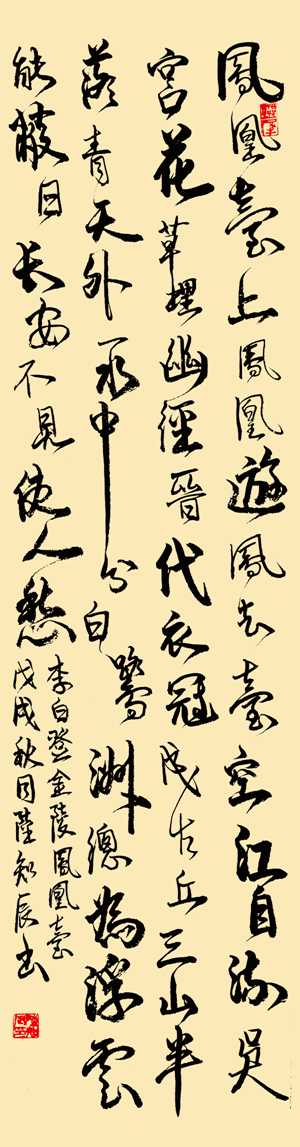 鳳凰臺上鳳凰遊鳳去臺空江自流吳
宮花草埋幽徑晉代衣冠成古丘三山半
落青天外一水中分白鷺洲總為浮雲
能蔽日長安不見使人愁
李白登金陵鳳凰臺
戊戌秋月陸知辰书